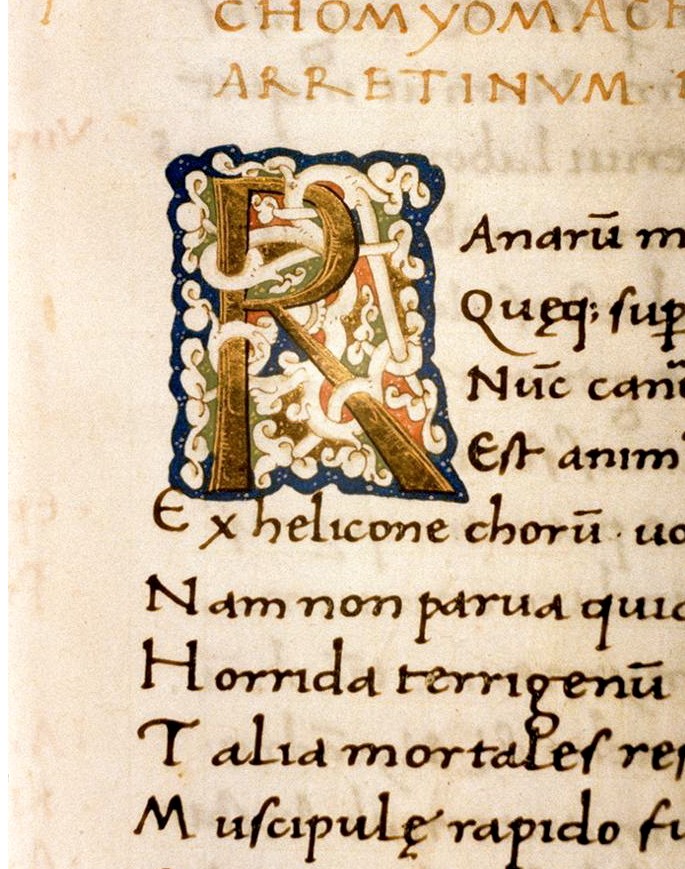 CHOMYOMACH
ARRETINVM
RAnarū m
Quęq; sup
Nūc canū
Est anim
Ex helicone chorū · uo
Nam non parua quid
Horrida terrigenū
Talia mortales res
Muscipulę rapido fu